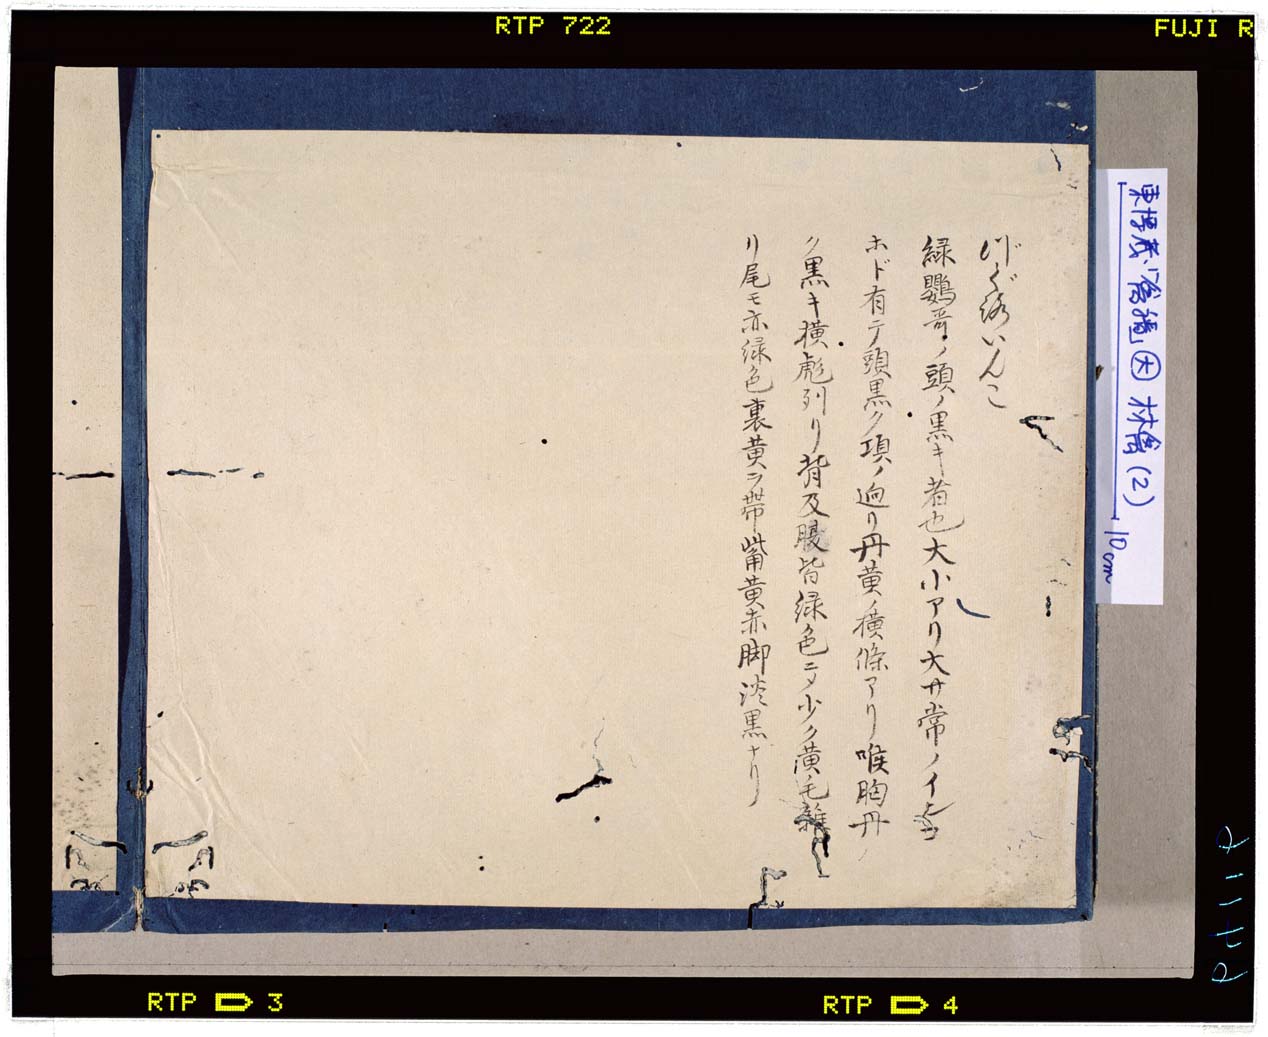 RTP 722
FUJI R
づぐろいんこ
緑鸚哥ノ頭ノ黒キ者也大小アリ大サ常ノインコ
ホド有テ頭黒ク項ノ廻リ丹黄ノ横條アリ喉胸丹
ク黒キ横彪列リ背及腹皆緑色ニメ少ク黄毛雑
リ尾モ亦緑色裏黄ヲ帯觜黄赤脚淡黒ナリ
東博蔵「禽譜」大 林禽(2)
10cm
RTP 3
RTP 4